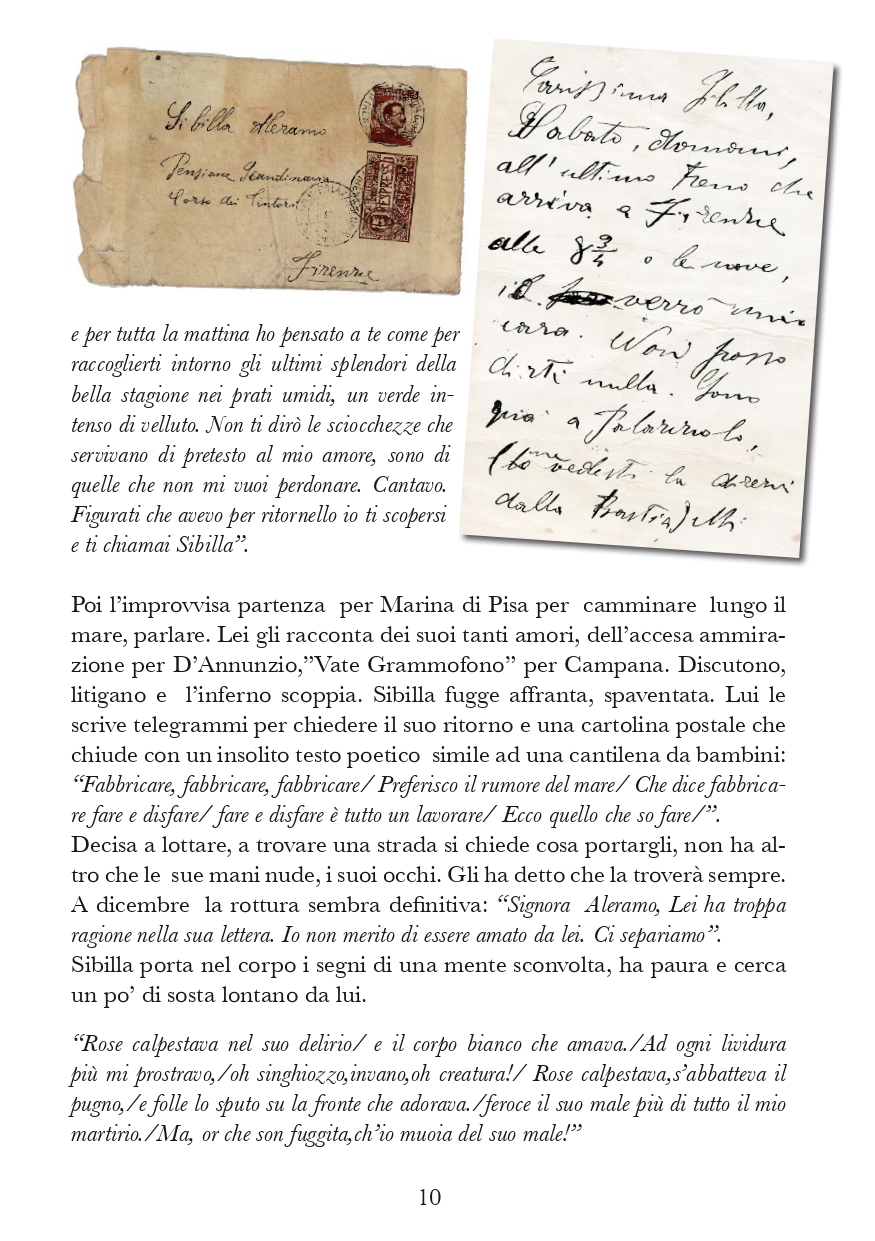 Sibilla Aleramo
Pensione Scandinava
Corso dei Tintori
Firenze
ESPRESSO
Carissima Sibilla,
Sabato, domani,
all'ultimo treno che
arriva a Firenze
alle 8 3/4 o le nove,
verrò mia
cara. Non posso
dirti nulla. Sono
già a Palazzuolo,
vedesti la
dalla
e per tutta la mattina ho pensato a te come per
raccoglierti intorno gli ultimi splendori della
bella stagione nei prati umidi, un verde in-
tenso di velluto. Non ti dirò le sciocchezze che
servivano di pretesto al mio amore, sono di
quelle che non mi vuoi perdonare. Cantavo.
Figurati che avevo per ritornello io ti scopersi
e ti chiamai Sibilla”.
Poi l’improvvisa partenza per Marina di Pisa per camminare lungo il
mare, parlare. Lei gli racconta dei suoi tanti amori, dell’accesa ammira-
zione per D’Annunzio,”Vate Grammofono” per Campana. Discutono,
litigano e l’inferno scoppia. Sibilla fugge affranta, spaventata. Lui le
scrive telegrammi per chiedere il suo ritorno e una cartolina postale che
chiude con un insolito testo poetico simile ad una cantilena da bambini:
“Fabbricare, fabbricare, fabbricare/ Preferisco il rumore del mare/ Che dice fabbrica-
re fare e disfare/ fare e disfare è tutto un lavorare/ Ecco quello che so fare/”.
Decisa a lottare, a trovare una strada si chiede cosa portargli, non ha al-
tro che le sue mani nude, i suoi occhi. Gli ha detto che la troverà sempre.
A dicembre la rottura sembra definitiva: “Signora Aleramo, Lei ha troppa
ragione nella sua lettera. Io non merito di essere amato da lei. Ci separiamo”.
Sibilla porta nel corpo i segni di una mente sconvolta, ha paura e cerca
un po’ di sosta lontano da lui.
“Rose calpestava nel suo delirio/ e il corpo bianco che amava./Ad ogni lividura
più mi prostravo,/oh singhiozzo,invano,oh creatura!/ Rose calpestava,s’abbatteva il
pugno,/e folle lo sputo su la fronte che adorava./feroce il suo male più di tutto il mio
martirio./Ma, or che son fuggita,ch’io muoia del suo male!”
10